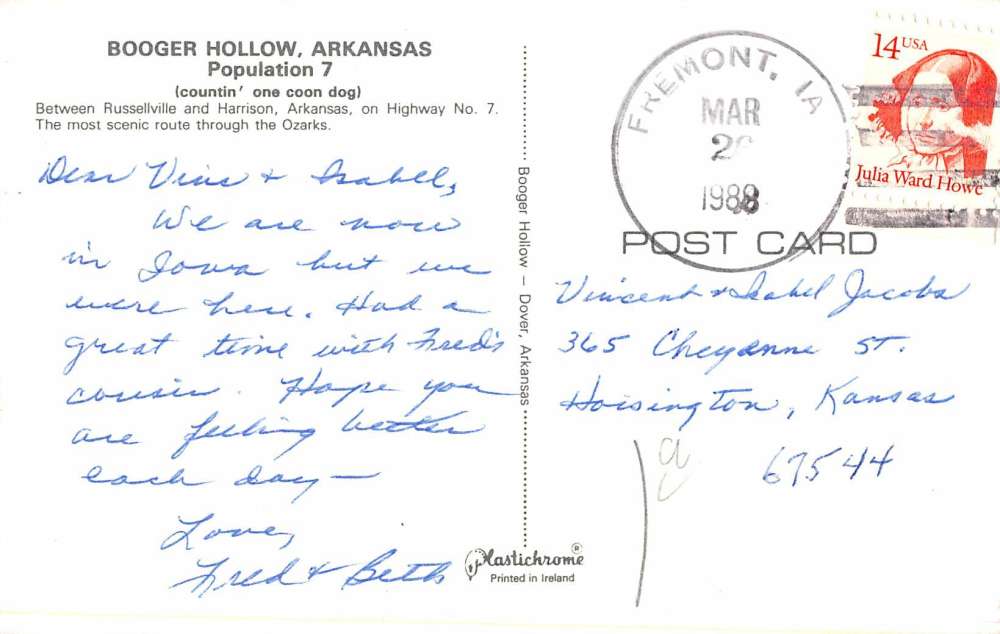 BOOGER HOLLOW, ARKANSAS
Population 7
(countin' one coon dog)
Between Russellville and Harrison, Arkansas, on Highway No. 7.
The most scenic route through the Ozarks.
Dear Vine & Isabel,
We are now
in Iowa but we
were here. Had a
great time with Fred's
cousin. Hope you
are feeling better
each day —
Love,
Fred & Beth
Booger Hollow — Dover, Arkansas
Plastichrome®
Printed in Ireland
FREMONT, IA
MAR
1988
14 USA
Julia Ward Howe
POST CARD
Vincent & Isabel Jacobs
365 Cheyenne St.
Hoisington, Kansas
67544